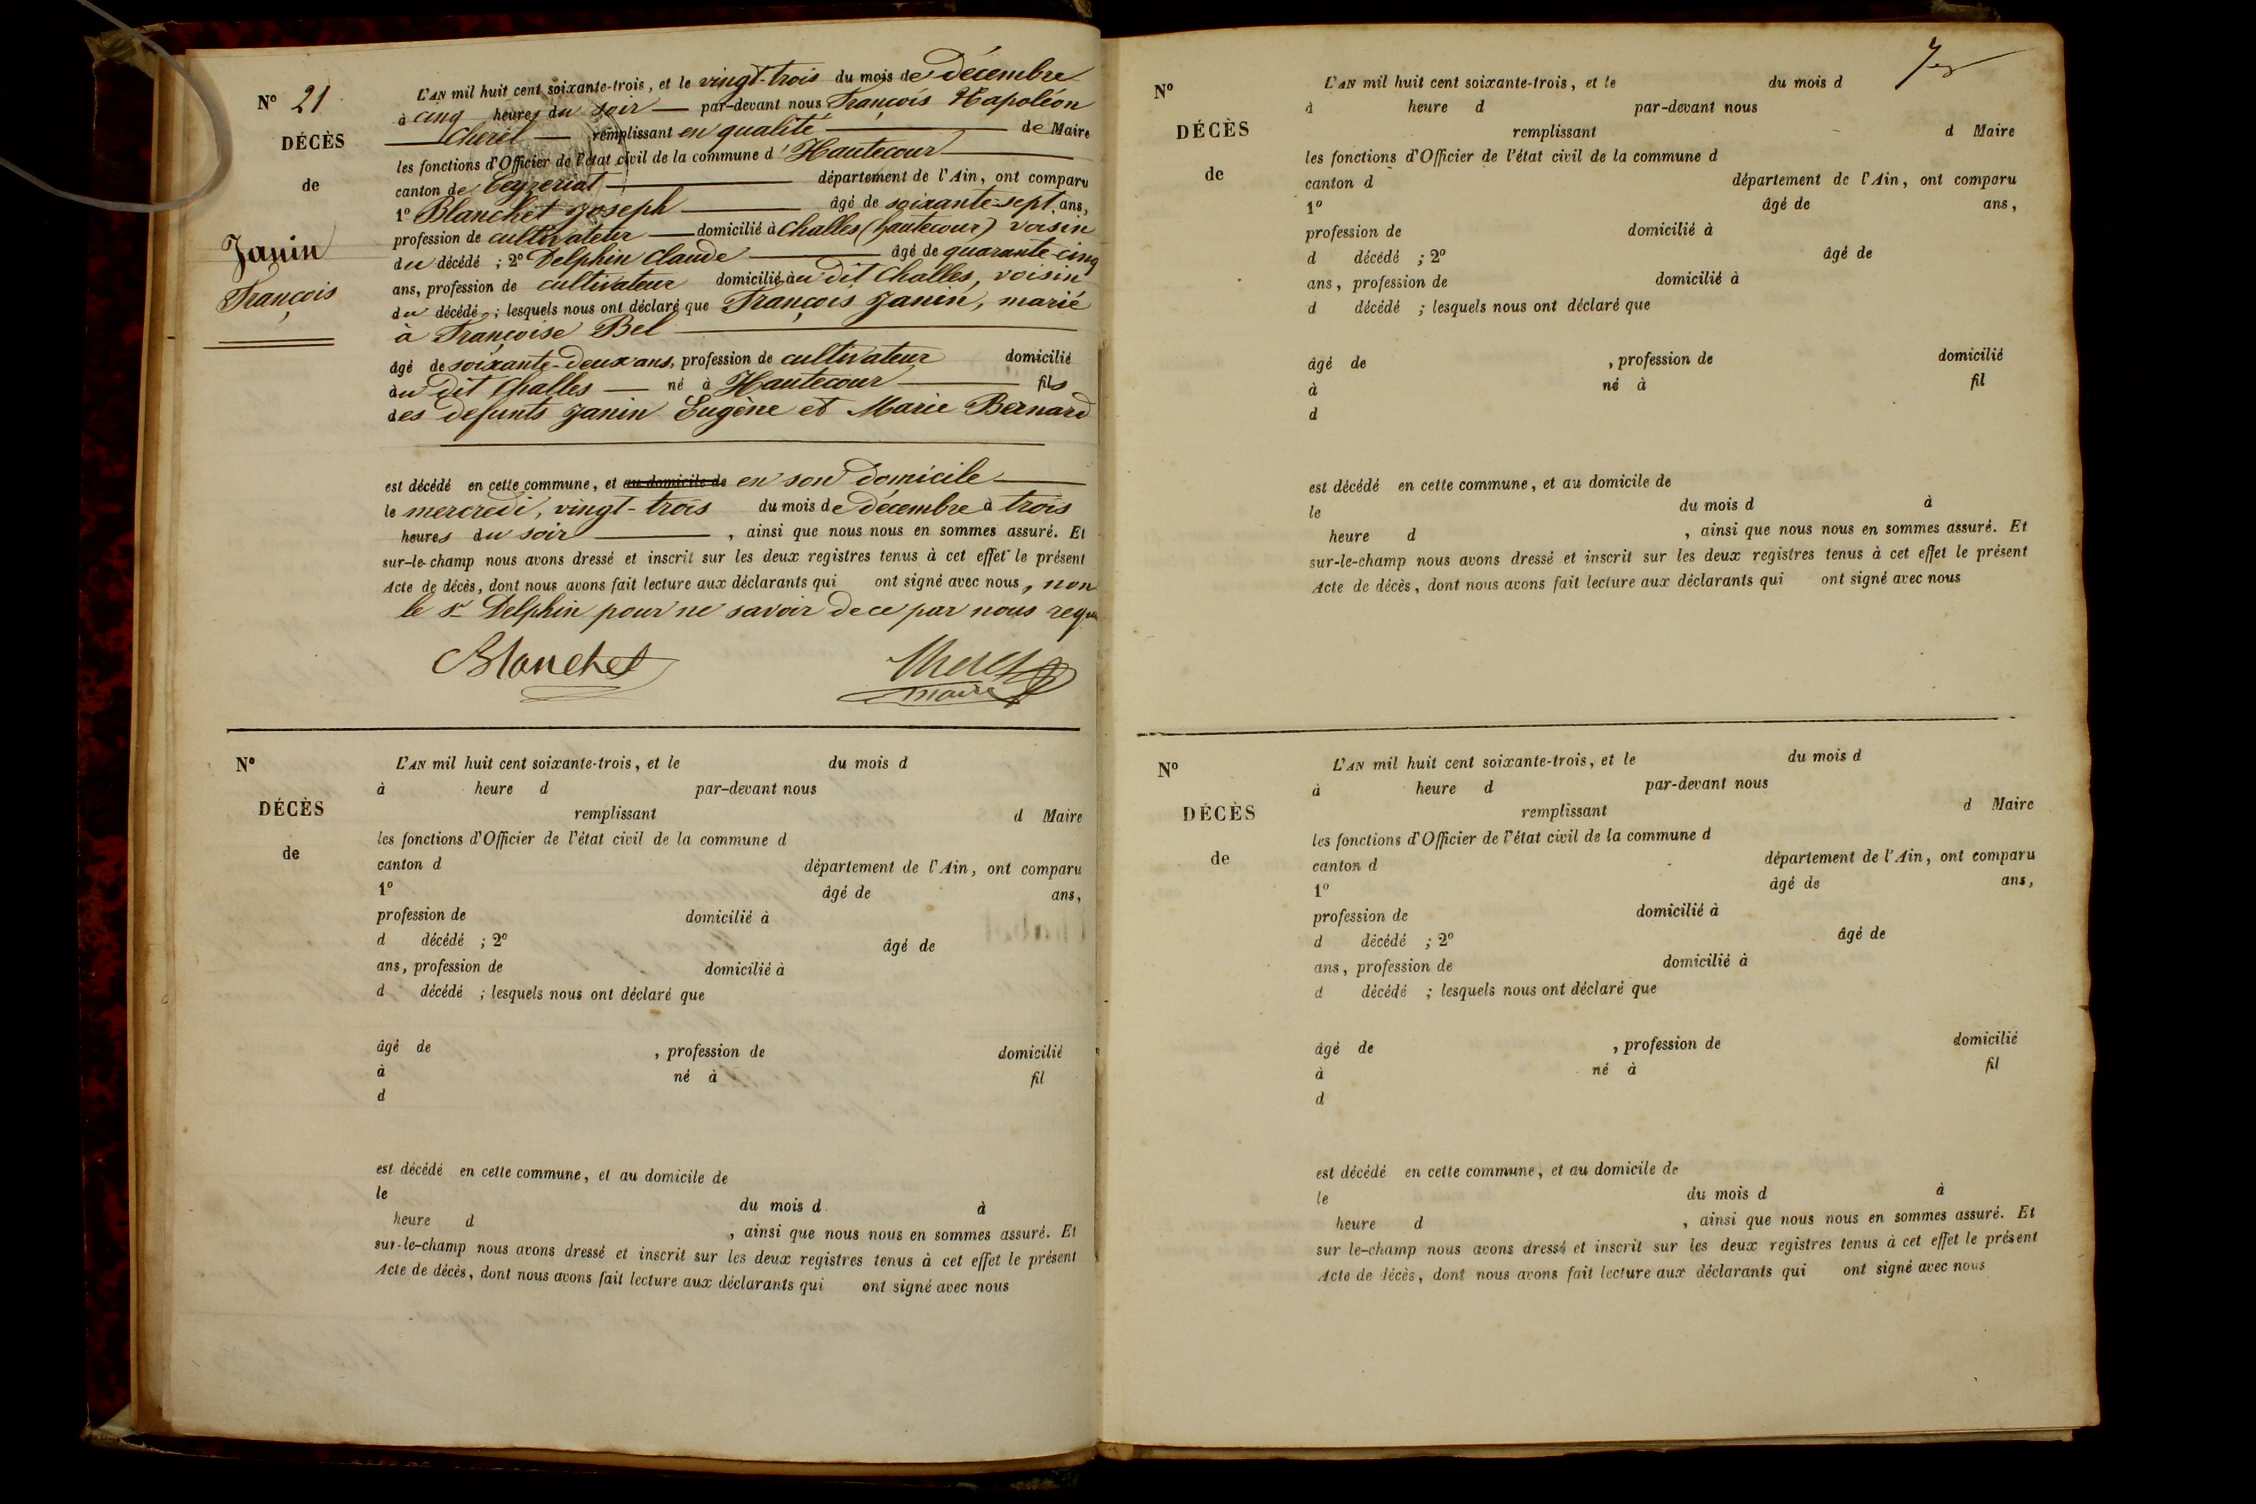 N° 21
DÉCÈS
de
Janin
François
L'AN mil huit cent soixante-trois, et le vingt-trois du mois de décembre
à cinq heures du soir par-devant nous François Napoléon
Cherel remplissant en qualité de Maire
les fonctions d'Officier de l'état civil de la commune d'Hautecour
canton de Ceyzeriat département de l'Ain, ont comparu
1° Blanchet Joseph âgé de soixante-sept ans,
profession de cultivateur domicilié à Challes (hautecour) voisin
du décédé ; 2° Delphin Claude âgé de quarante-cinq
ans, profession de cultivateur domicilié au dit Challes, voisin
du décédé ; lesquels nous ont déclaré que François Janin, marié
à Françoise Bel
âgé de soixante-deux ans, profession de cultivateur domicilié
au dit Challes né à Hautecour fils
des defunts Janin Eugène et Marie Bernard
est décédé en cette commune, et au domicile de en son domicile
le mercredi, vingt-trois du mois de décembre à trois
heures du soir , ainsi que nous nous en sommes assuré. Et
sur-le-champ nous avons dressé et inscrit sur les deux registres tenus à cet effet le présent
Acte de décès, dont nous avons fait lecture aux déclarants qui ont signé avec nous, non
le Sr Delphin pour ne savoir de ce par nous requis
Blanchet Cherel
maire
N°
DÉCÈS
de
L'AN mil huit cent soixante-trois, et le du mois d
à heure d par-devant nous
remplissant d Maire
les fonctions d'Officier de l'état civil de la commune d
canton d département de l'Ain, ont comparu
1° âgé de ans,
profession de domicilié à
d décédé ; 2° âgé de
ans, profession de domicilié à
d décédé ; lesquels nous ont déclaré que
âgé de , profession de domicilié
à né à fil
d
est décédé en cette commune, et au domicile de
le du mois d à
heure d , ainsi que nous nous en sommes assuré. Et
sur-le-champ nous avons dressé et inscrit sur les deux registres tenus à cet effet le présent
Acte de décès, dont nous avons fait lecture aux déclarants qui ont signé avec nous
N°
DÉCÈS
de
L'AN mil huit cent soixante-trois, et le du mois d
à heure d par-devant nous
remplissant d Maire
les fonctions d'Officier de l'état civil de la commune d
canton d département de l'Ain, ont comparu
1° âgé de ans,
profession de domicilié à
d décédé ; 2° âgé de
ans, profession de domicilié à
d décédé ; lesquels nous ont déclaré que
âgé de , profession de domicilié
à né à fil
d
est décédé en cette commune, et au domicile de
le du mois d à
heure d , ainsi que nous nous en sommes assuré. Et
sur-le-champ nous avons dressé et inscrit sur les deux registres tenus à cet effet le présent
Acte de décès, dont nous avons fait lecture aux déclarants qui ont signé avec nous
N°
DÉCÈS
de
L'AN mil huit cent soixante-trois, et le du mois d
à heure d par-devant nous
remplissant d Maire
les fonctions d'Officier de l'état civil de la commune d
canton d département de l'Ain, ont comparu
1° âgé de ans,
profession de domicilié à
d décédé ; 2° âgé de
ans, profession de domicilié à
d décédé ; lesquels nous ont déclaré que
âgé de , profession de domicilié
à né à fil
d
est décédé en cette commune, et au domicile de
le du mois d à
heure d , ainsi que nous nous en sommes assuré. Et
sur le-champ nous avons dressé et inscrit sur les deux registres tenus à cet effet le présent
Acte de décès, dont nous avons fait lecture aux déclarants qui ont signé avec nous